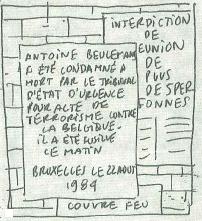 ANTOINE BEULEMANS
A ÉTÉ CONDAMNÉ A
MORT PAR LE TRIBUNAL
D'ÉTAT D'URGENCE
POUR ACTE DE
TERRORISME CONTRE
LA BELGIQUE.
IL A ETE FUSILLÉ
CE MATIN
BRUXELLES LE 22 AOUT
1984
INTERDICTION
DE
REUNION
DE
PLUS
DE 5 PER
SONNES
COUVRE FEU